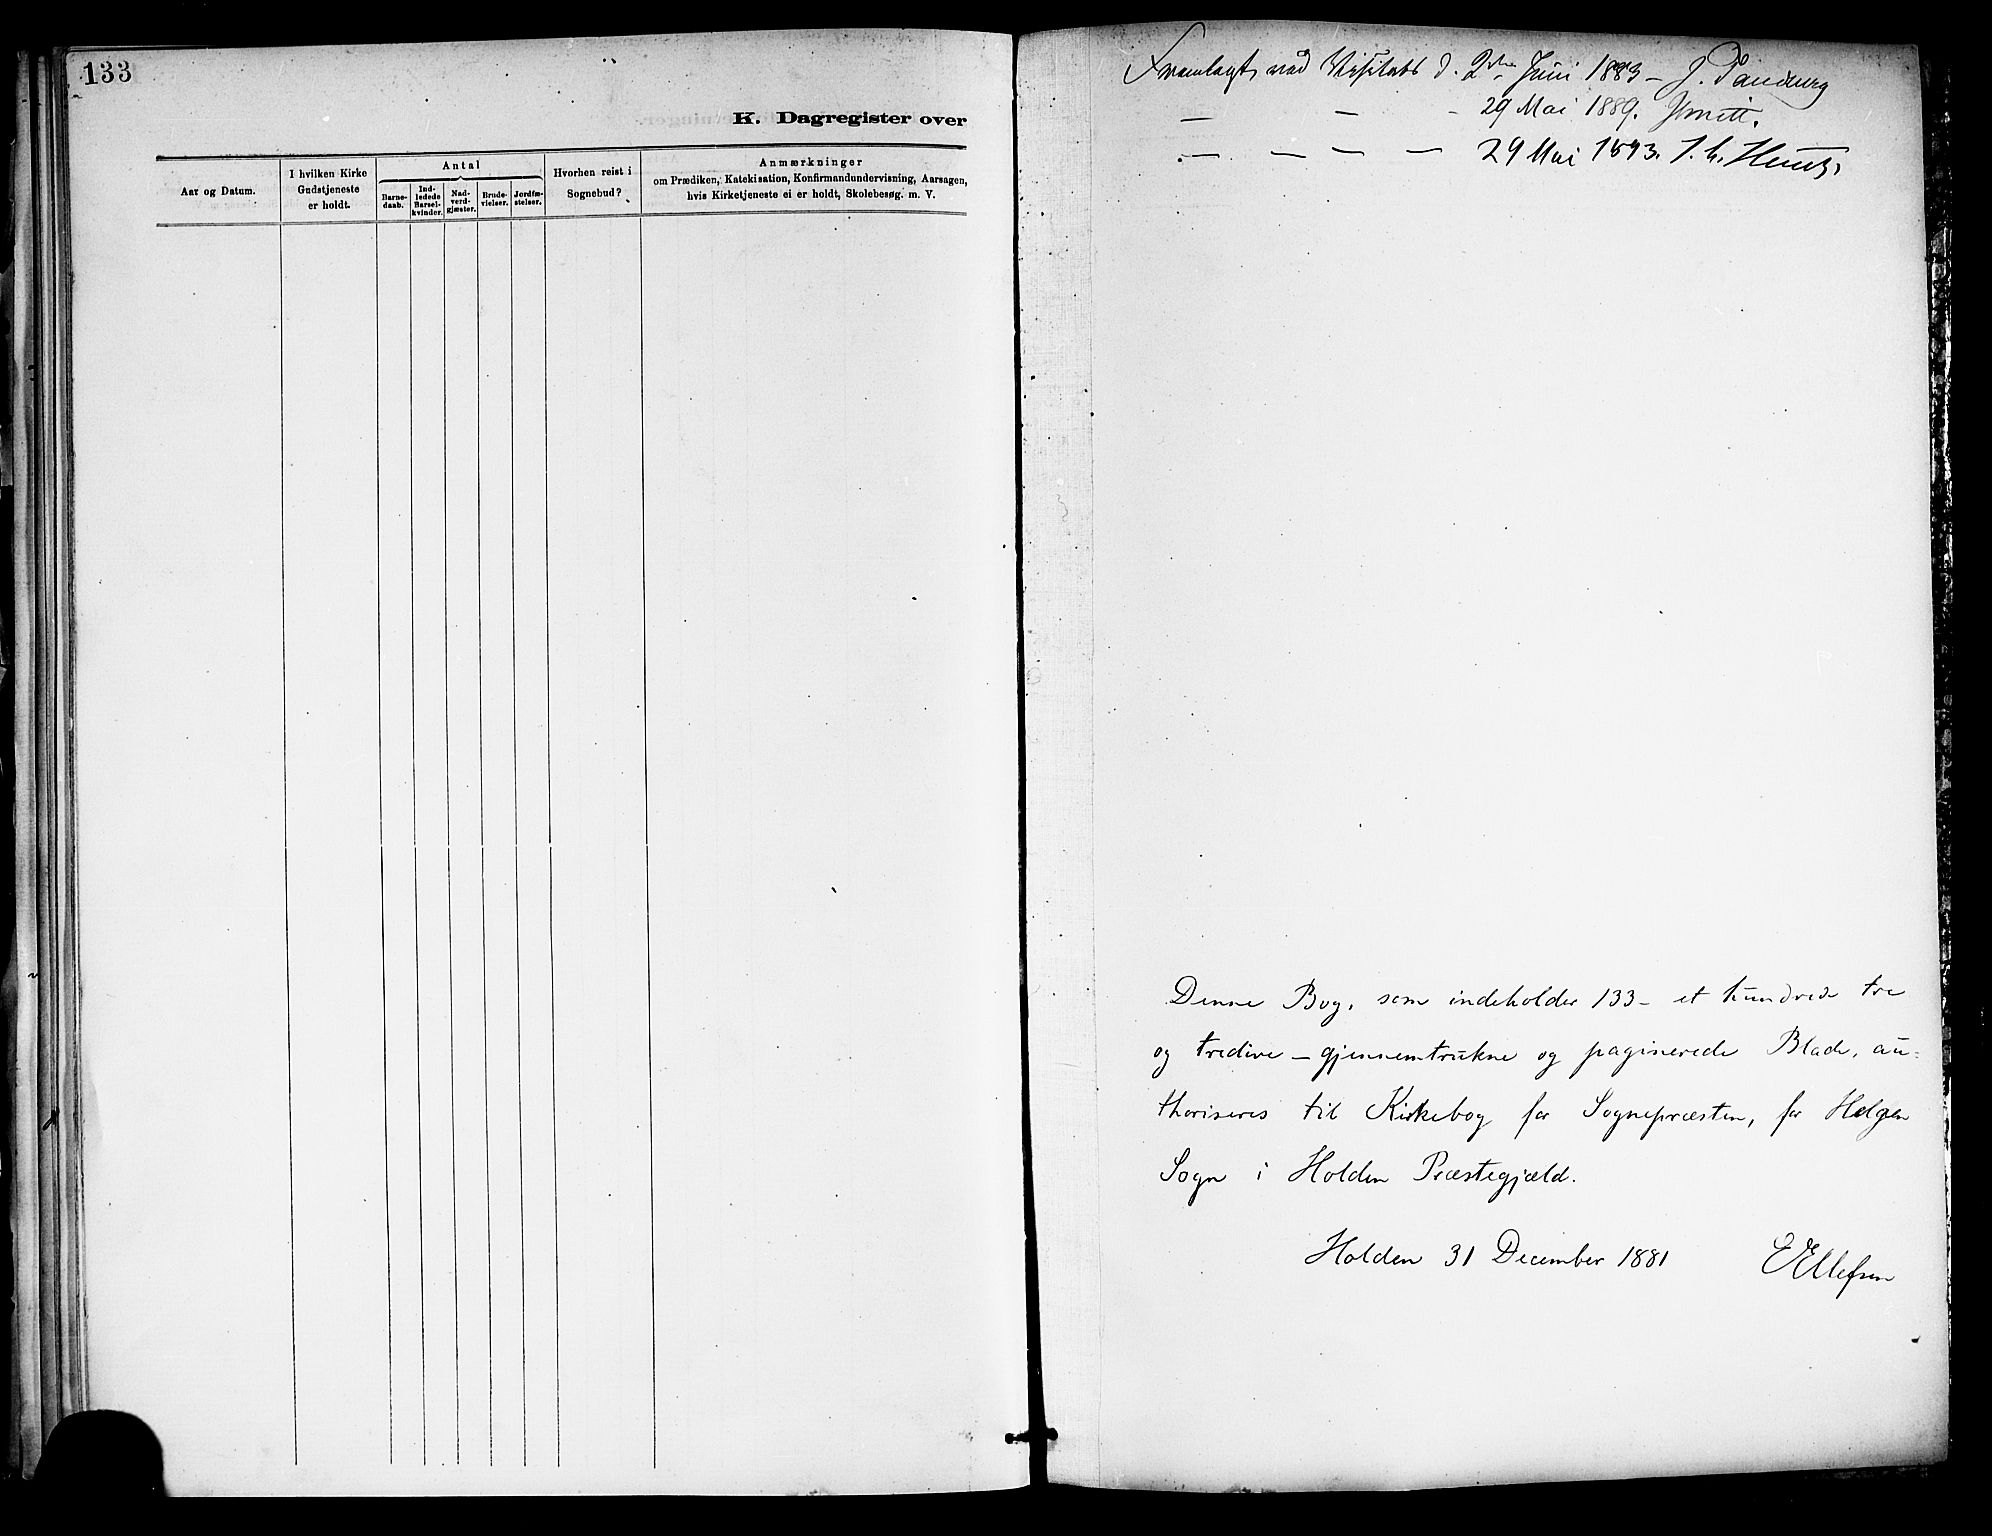 133
K. Dagregister over
Aar og Datum.
I hvilken Kirke
Gudstjeneste
er holdt.
Antal
Barne-
daab.
Ind-
ledede
Barsel-
kvinder.
Nad-
verd-
gjæster.
Brude-
vielser.
Jordfæ-
stelser.
Hvorhen reist i
Sognebud?
Anmærkninger
om Prædiken, Katekisation, Konfirmandundervisning, Aarsagen,
hvis Kirketjeneste ei er holdt, Skolebesøg. m. V.
Fremlagt ved Visitats d. 2den Juni 1883 – J.
— — - 29 Mai 1889.
— — — — 29 Mai 1893.
Denne Bog, som indeholder 133 – et hundrede tre
og tredive – gjennemtrukne og paginerede Blade, au-
thoriseres til Kirkebog for Sognepræsten, for Helgen
Sogn i Holden Præstegjæld.
Holden 31 December 1881 E Ellefsen